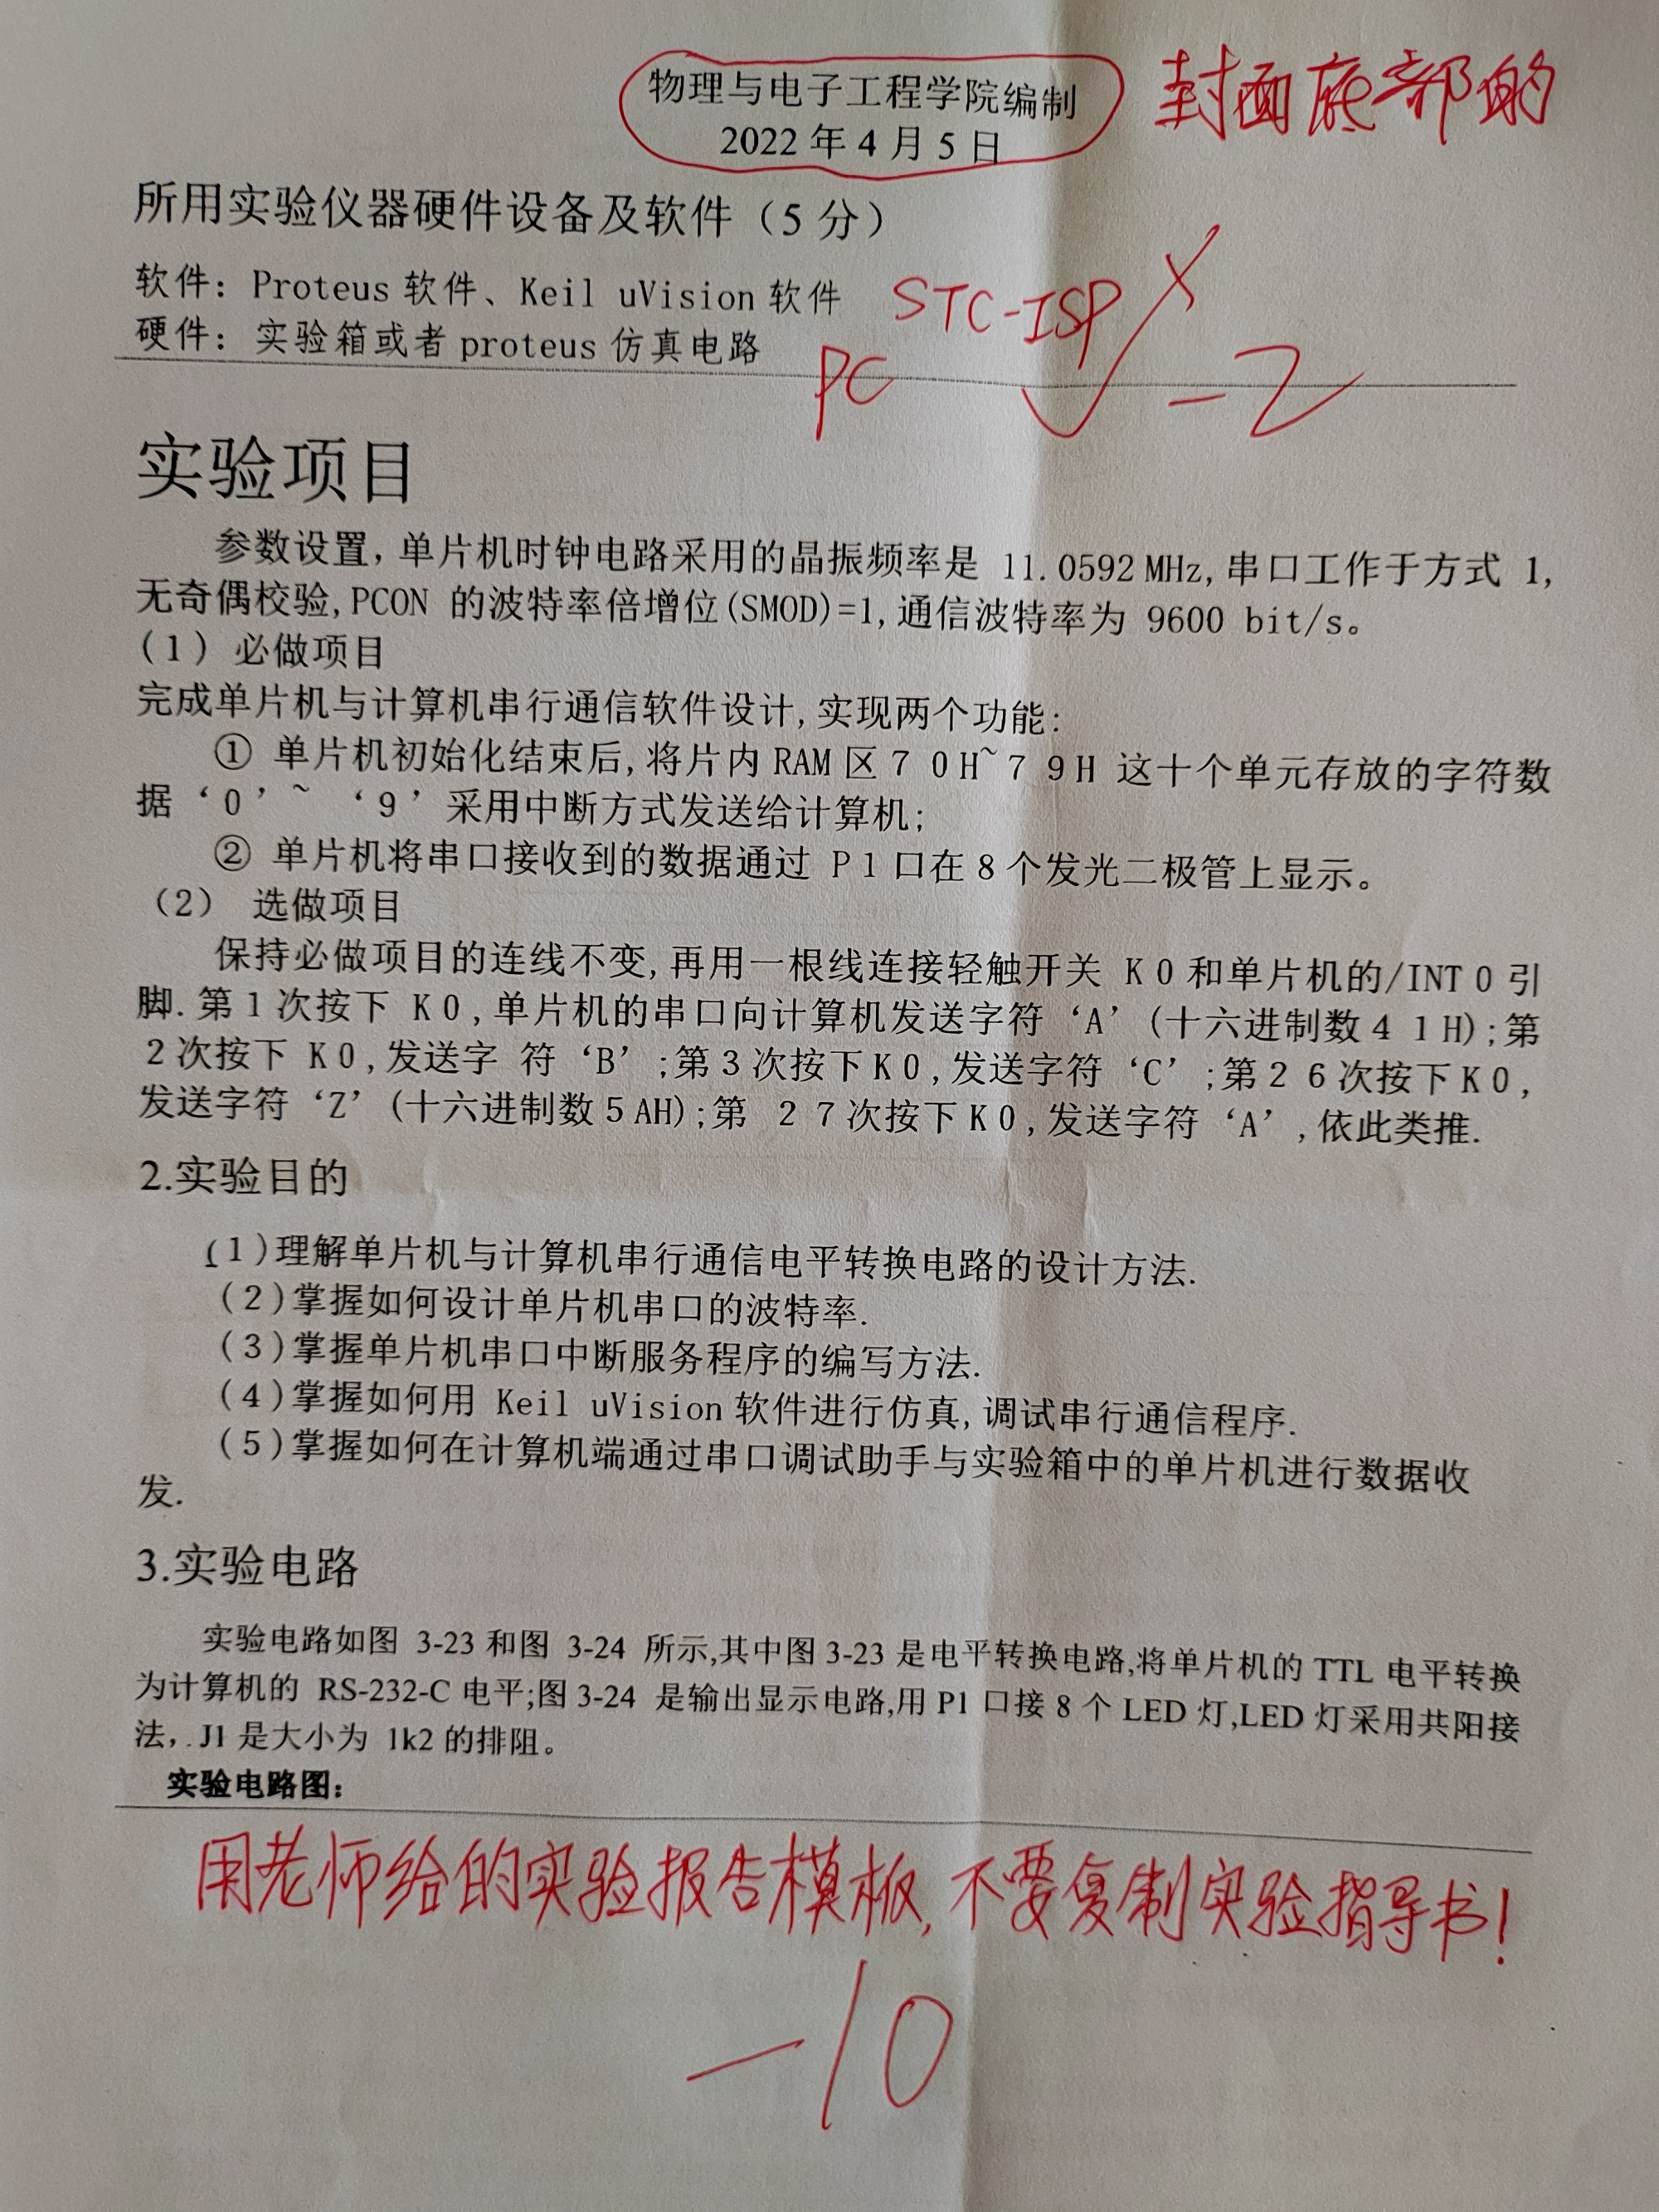 物理与电子工程学院编制 封面底部的
2022 年 4 月 5 日
所用实验仪器硬件设备及软件（5 分）
软件：Proteus 软件、Keil uVision 软件 STC-ISP
硬件：实验箱或者 proteus 仿真电路 PC
-2
实验项目
参数设置, 单片机时钟电路采用的晶振频率是 11.0592 MHz, 串口工作于方式 1,
无奇偶校验, PCON 的波特率倍增位(SMOD)=1, 通信波特率为 9600 bit/s。
(1) 必做项目
完成单片机与计算机串行通信软件设计, 实现两个功能:
① 单片机初始化结束后, 将片内 RAM 区 7 0 H~ 7 9 H 这十个单元存放的字符数
据 ‘0’~ ‘9’ 采用中断方式发送给计算机;
② 单片机将串口接收到的数据通过 P 1 口在 8 个发光二极管上显示。
(2) 选做项目
保持必做项目的连线不变, 再用一根线连接轻触开关 K 0 和单片机的/INT 0 引
脚. 第 1 次按下 K 0, 单片机的串口向计算机发送字符 ‘A’ (十六进制数 4 1 H); 第
2 次按下 K 0, 发送字 符 ‘B’ ; 第 3 次按下 K 0, 发送字符 ‘C’ ; 第 2 6 次按下 K 0,
发送字符 ‘Z’ (十六进制数 5 AH); 第 2 7 次按下 K 0, 发送字符 ‘A’ , 依此类推.
2.实验目的
(1)理解单片机与计算机串行通信电平转换电路的设计方法.
(2)掌握如何设计单片机串口的波特率.
(3)掌握单片机串口中断服务程序的编写方法.
(4)掌握如何用 Keil uVision 软件进行仿真, 调试串行通信程序.
(5)掌握如何在计算机端通过串口调试助手与实验箱中的单片机进行数据收
发.
3.实验电路
实验电路如图 3-23 和图 3-24 所示,其中图 3-23 是电平转换电路,将单片机的 TTL 电平转换
为计算机的 RS-232-C 电平;图 3-24 是输出显示电路,用 P1 口接 8 个 LED 灯,LED 灯采用共阳接
法，. J1 是大小为 1k2 的排阻。
实验电路图：
用老师给的实验报告模板, 不要复制实验指导书!
-10